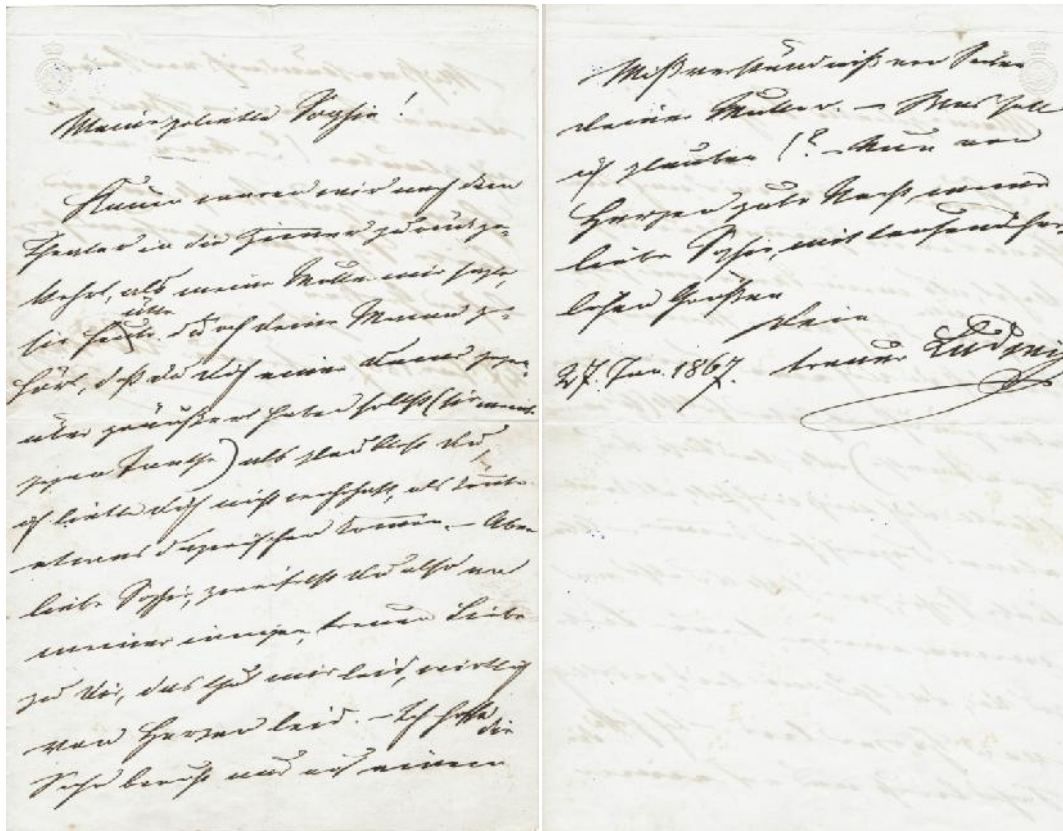 Meine geliebte Sophie!
Kaum waren wir nach dem
Theater in die Zimmer zurückge-
kehrt, als meine Mutter mir sagte,
sie hätte durch deine Mama ge-
hört, daß du dich einer Dame gegen-
über geäußert haben sollst (
) als glaubtest du,
ich liebte dich nicht wahrhaft, als könnte
etwas dazwischen kommen. – Aber
liebe Sophie, zweifelst du also an
meiner innigen, treuen Liebe
zu dir, das thut mir leid, wirklich
von Herzen leid. – Ich hoffe die
Sache beruht nur auf einem
Mißverständniß von Seiten
deiner Mutter. – Was soll
ich glauben!? – Nun von
Herzen gute Nacht meine
liebe Sophie, mit tausend herz-
lichen Grüßen
Dein
27. Jan. 1867. treuer Ludwig